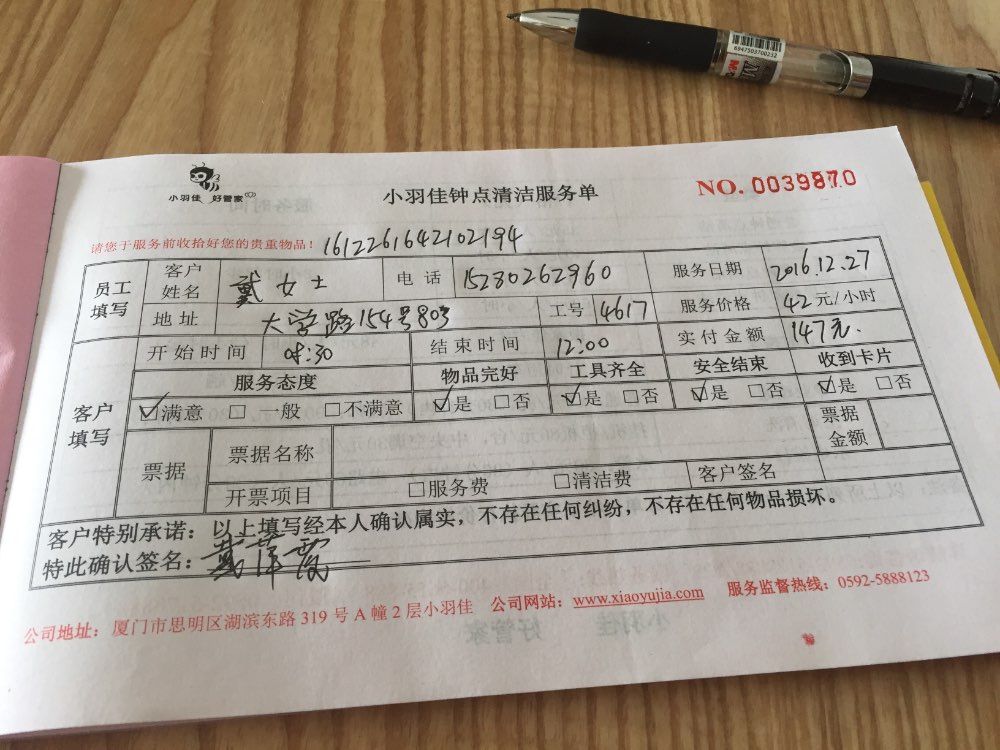 6947503700232
小羽佳 好管家
小羽佳钟点清洁服务单
NO. 0039870
请您于服务前收拾好您的贵重物品！ 1612261642102194
员工填写 客户姓名 戴女士 电话 15280262960 服务日期 2016.12.27
地址 大学路154号803 工号 4617 服务价格 42元/小时
客户填写 开始时间 08:30 结束时间 12:00 实付金额 147元
服务态度 物品完好 工具齐全 安全结束 收到卡片
☑满意 □一般 □不满意 ☑是 □否 ☑是 □否 ☑是 □否 ☑是 □否
票据 票据名称 票据金额
开票项目 □服务费 □清洁费 客户签名
客户特别承诺：以上填写经本人确认属实，不存在任何纠纷，不存在任何物品损坏。
特此确认签名：戴萍霞
公司地址：厦门市思明区湖滨东路 319 号 A 幢 2 层小羽佳 公司网站：www.xiaoyujia.com 服务监督热线：0592-5888123